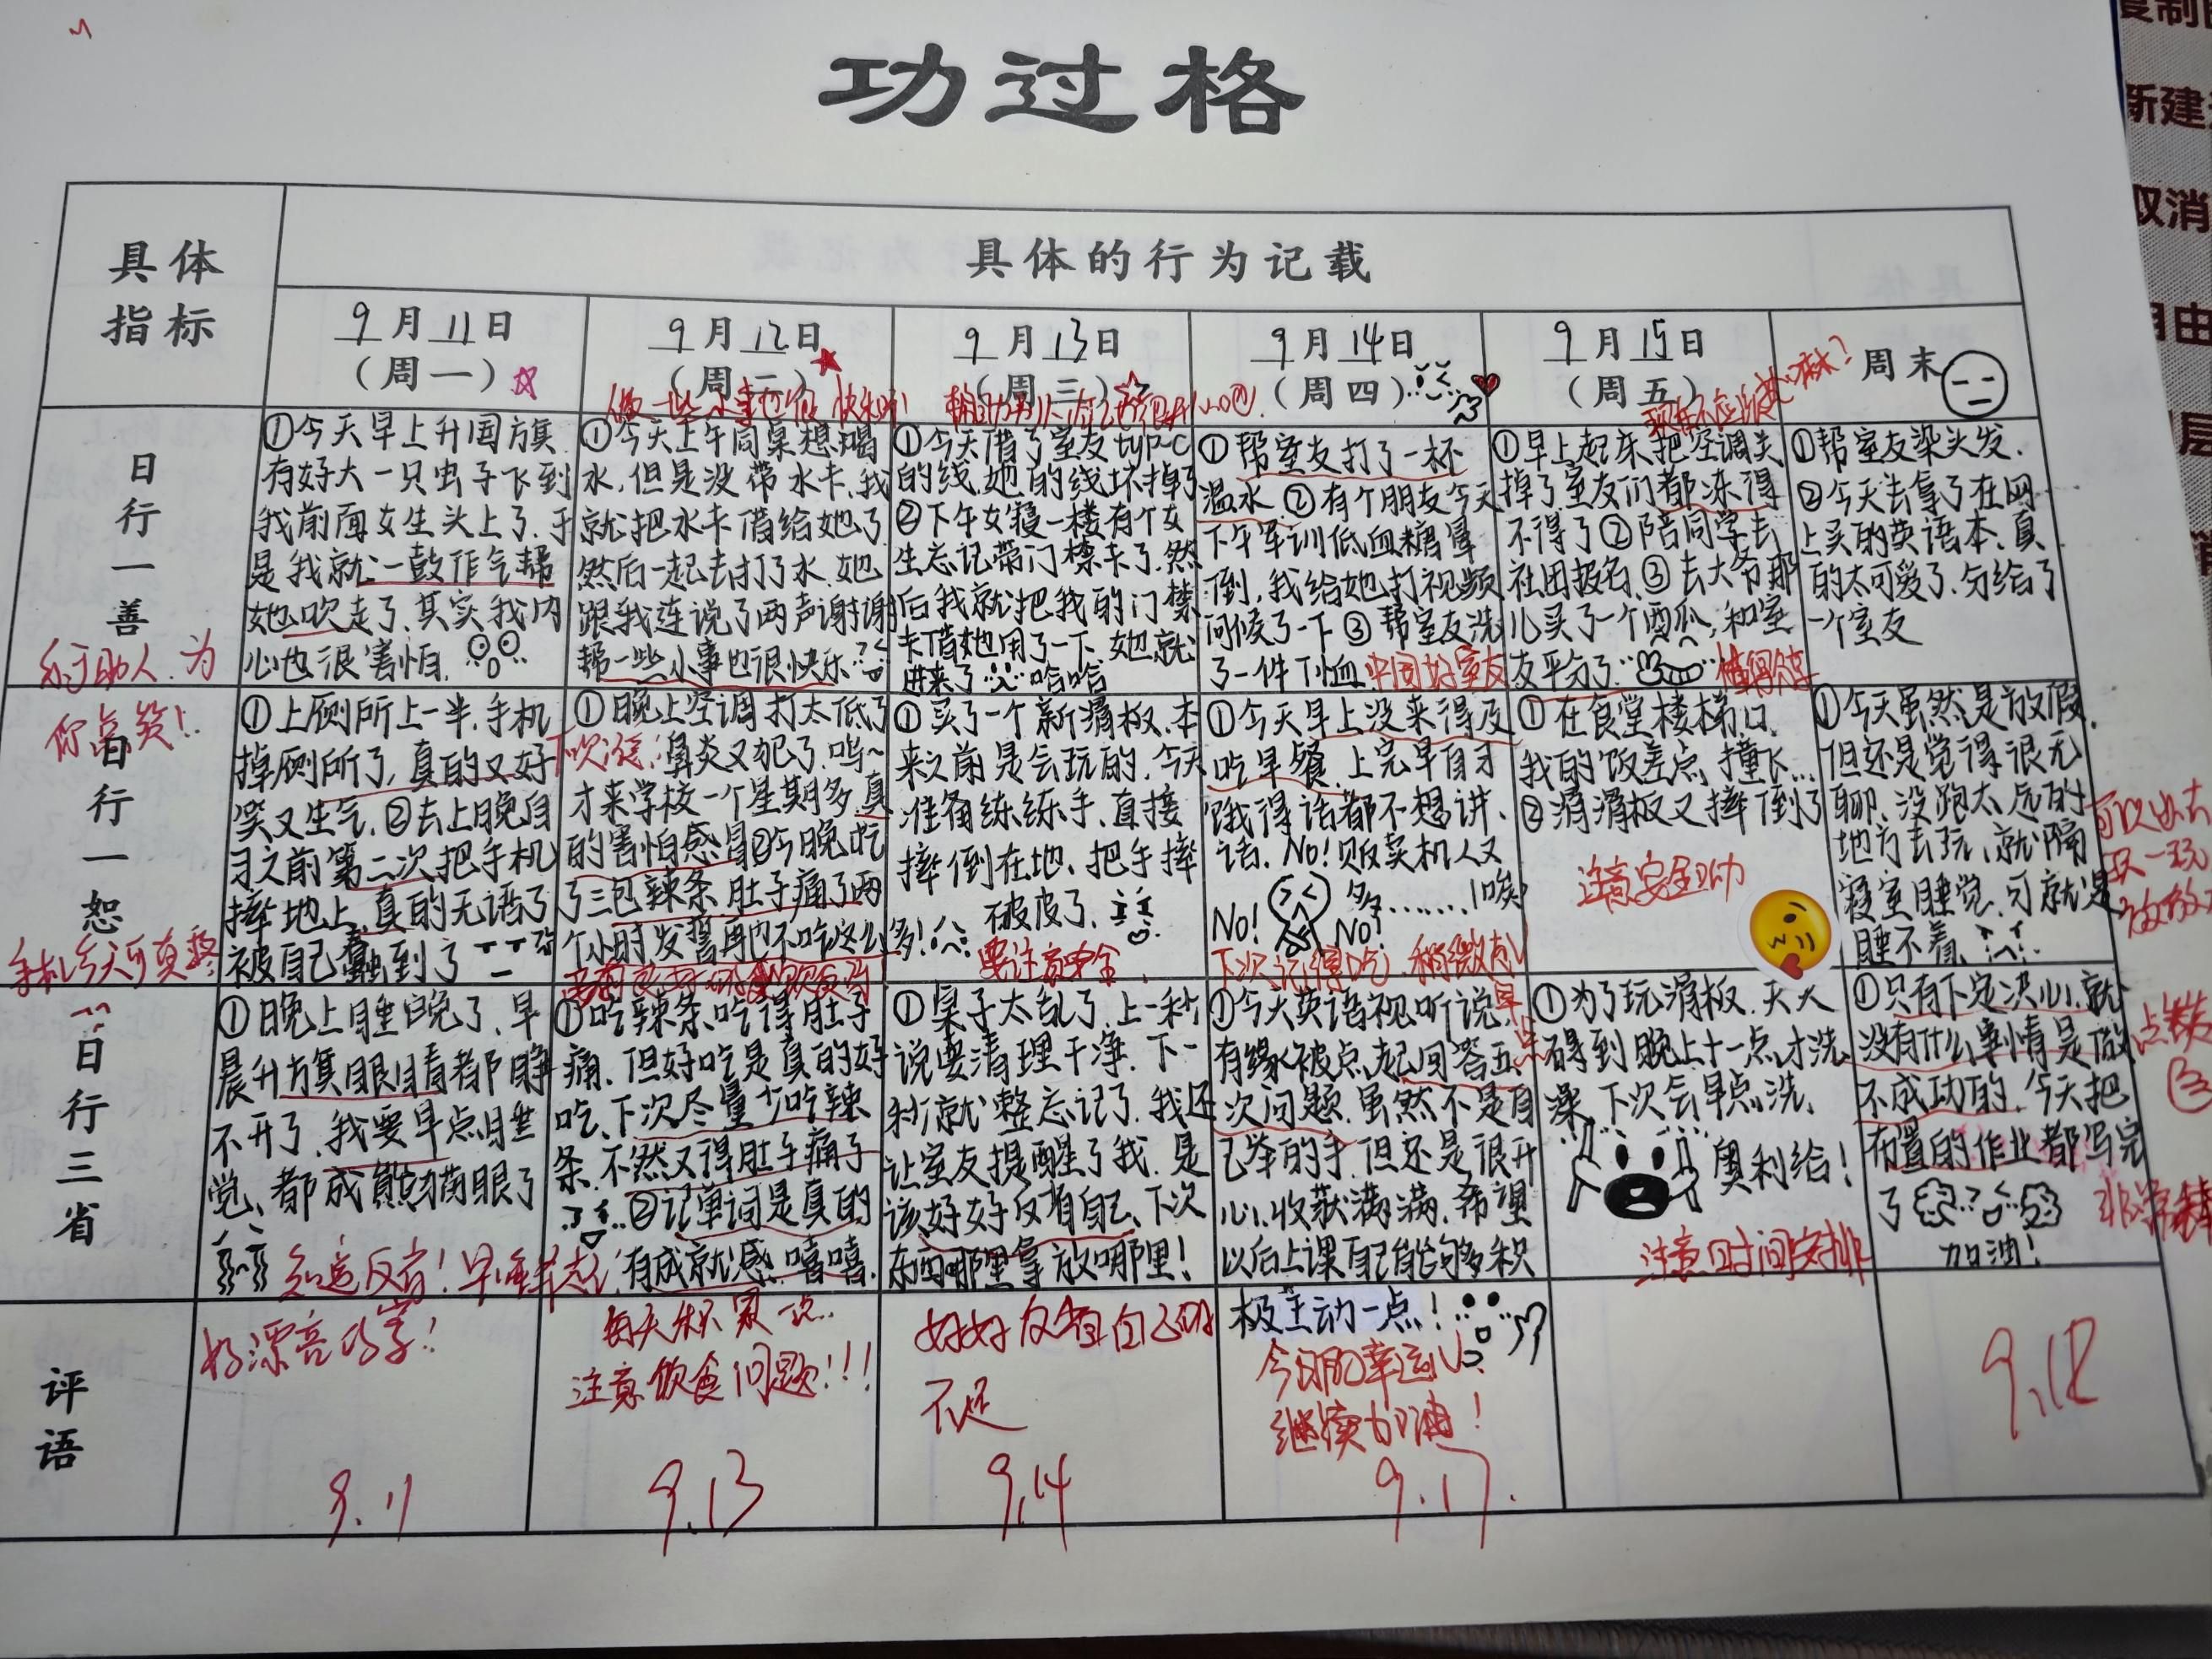 功过格
具体
指标
具体的行为记载
9月11日
(周一)
9月12日
(周二)
9月13日
(周三)
9月14日
(周四)
9月15日
(周五)
周末
日行一善
①今天早上升国旗
有好大一只虫子飞到
我前面女生头上了,于
是我就一鼓作气帮
她吹走了,其实我内
心也很害怕.
乐于助人,为
你点赞!
①今天上午同桌想喝
水,但是没带水卡,我
就把水卡借给她了
然后一起去打了水.她
跟我连说了两声谢谢
帮一些小事也很快乐
①今天借了室友typ-c
的线,她的线坏掉了
②下午女寝一楼有个女
生忘记带门禁卡了.然
后我就把我的门禁
卡借她用了一下,她就
进来了 哈哈
①帮室友打了一杯
温水.②有个朋友今天
下午军训低血糖晕
倒,我给她打视频
问候了一下③帮室友洗
了一件T恤
中国好室友
①早上起床把空调关
掉了室友们都冻得
不得了②陪同学去
社团报名③去大爷那
儿买了一个西瓜,和室
友平分了
①帮室友染头发.
②今天去拿了在网
上买的英语本,真
的太可爱了,分给了
一个室友
日行一恕
①上厕所上一半,手机
掉厕所了,真的又好
笑又生气.②去上晚自
习之前第二次把手机
摔地上,真的无语了
被自己蠢到了
手机今天可真疼
①晚上空调打太低了
鼻炎又犯了.呜~
才来学校一个星期多,真
的害怕感冒②今晚吃
了三包辣条,肚子痛了两
个小时发誓再也不吃这么
多!
①买了一个新滑板.本
来之前是会玩的,今天
准备练练手,直接
摔倒在地,把手摔
破皮了.
要注意安全
①今天早上没来得及
吃早餐,上完早自习
饿得话都不想讲.
话. No!贩卖机人又
No! 多.......!唉
No!
下次记得吃,稍微
早点
①在食堂楼梯口,
我的饭差点撞飞...
②滑滑板又摔倒了
注意安全
①今天虽然是放假,
但还是觉得很无
聊,没跑太远的
地方去玩,就隔
寝室睡觉,可就是
睡不着.
可以出去
玩一玩
一日行三省
①晚上睡晚了,早
晨升旗眼睛都睁
不开了,我要早点睡
觉、都成熊猫眼了
①吃辣条,吃得肚子
痛,但好吃是真的好
吃,下次尽量少吃辣
条.不然又得肚子痛了
②记单词是真的
有成就感,嘻嘻.
①桌子太乱了,上一秒
说要清理干净,下一
秒就整忘记了.我还
让室友提醒了我.是
该好好反省自己,下次
东西哪里拿放哪里!
①今天英语视听说,
有缘被点起回答五
次问题.虽然不是自
己举的手,但还是很开
心.收获满满.希望
以后上课自己能够多积
极主动一点!
①为了玩滑板.天天
碍到晚上十一点才洗
澡,下次会早点洗,
奥利给!
注意时间安排
①只有下定决心.就
没有什么事情是做
不成功的,今天把
布置的作业都写完
了
加油!
点赞
非常棒
评语
好漂亮的字!
9.11
注意饮食问题!!!
9.13
好好反省自己的
不足
9.14
继续加油!
9.17.
9.18